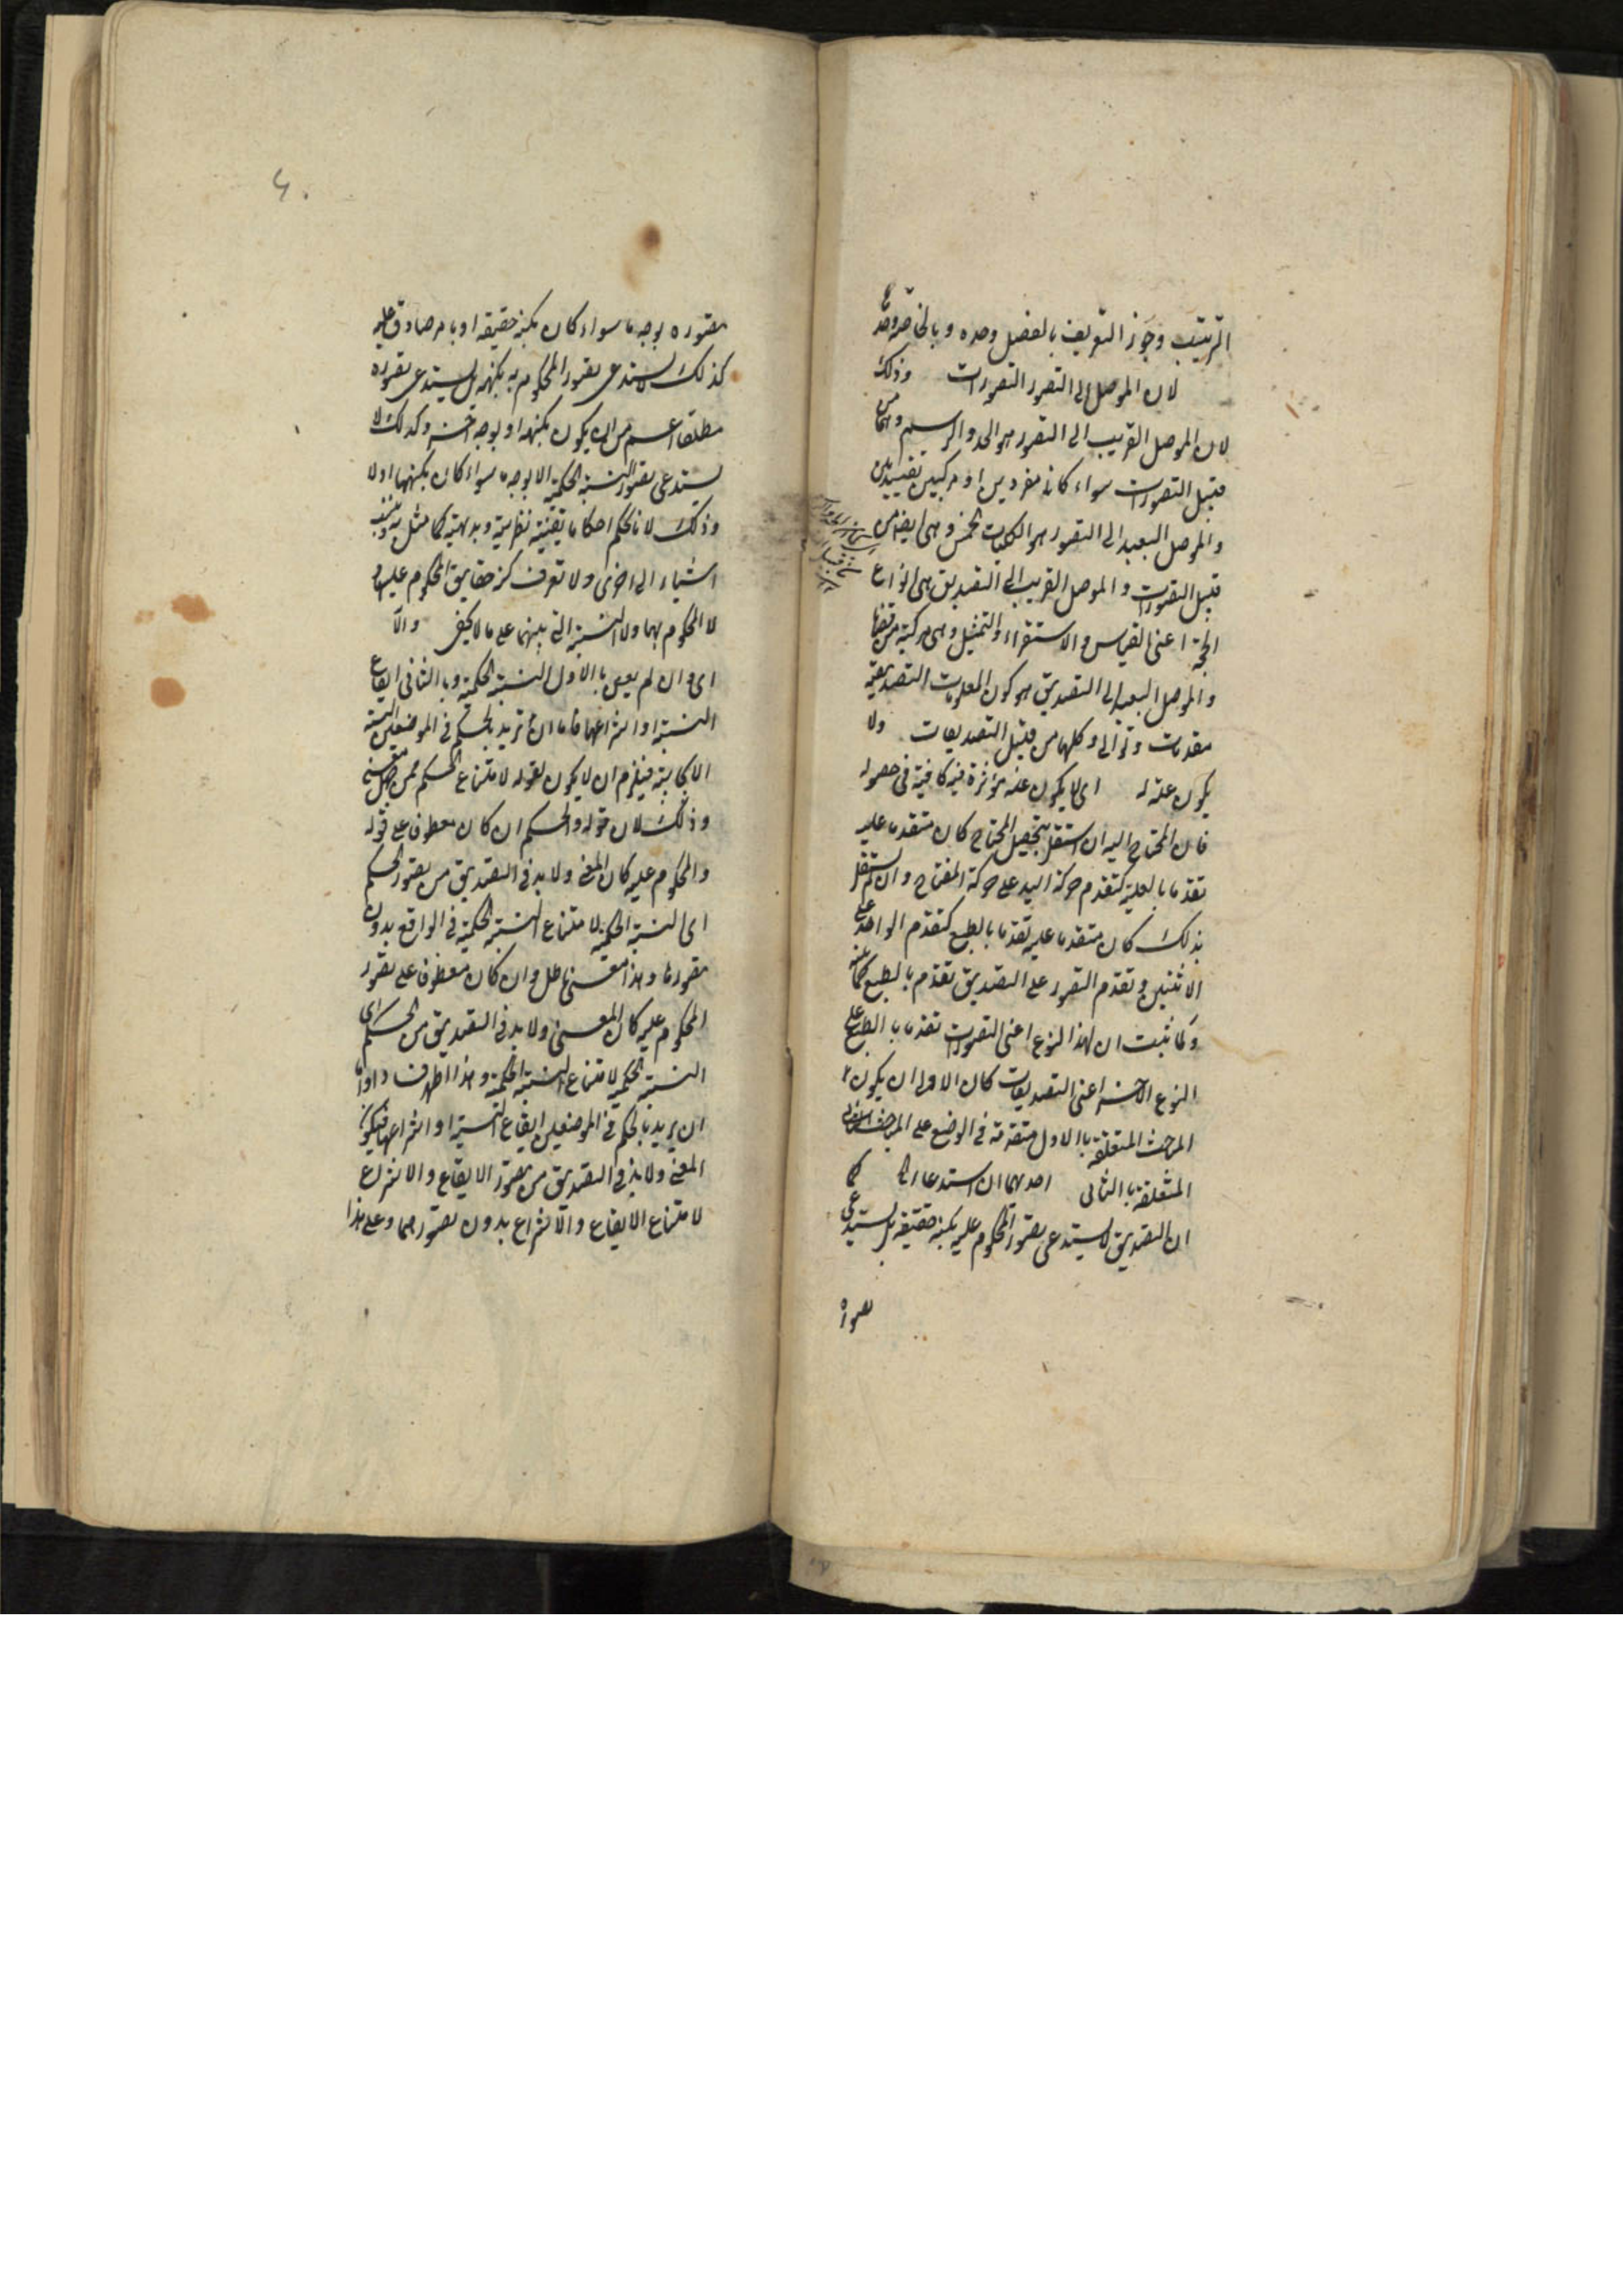 الترتيب وجوز التعريف بالفصل وحده وبالخاصة وحدها
لان الموصل الى التصور التصورات وذلك
لان الموصل القريب الى التصور هو الحد والرسم وهما من
قبيل التصورات سواء كانا مفردين او مركبين تقييديين
والموصل البعيد الى التصور هو الكليات الخمس وهى ايضا من
قبيل التصورات والموصل القريب الى التصديق هى انواع
الحجة اعنى القياس والاستقراء والتمثيل وهى مركبة من قضايا
والموصل البعيد الى التصديق هو كون المعلومات التصديقية
مقدمات وتوالى وكلها من قبيل التصديقات ولا
يكون علة له اى لا يكون علة مؤثرة فيه كافية فى حصوله
فان المحتاج اليه ان استقل بتحصيل المحتاج كان متقدما عليه
تقدما بالعلية كتقدم حركة اليد على حركة المفتاح وان لم يستقل
بذلك كان متقدما عليه تقدما بالطبع كتقدم الواحد على
الاثنين وتقدم التصور على التصديق تقدم بالطبع كما بينه
ولما ثبت ان لهذا النوع اعنى التصورات تقدما بالطبع على
النوع الاخر اعنى التصديقات كان الاولى ان يكون
المباحث المتعلقة بالاول متقدمة فى الوضع على المباحث
المتعلقة بالثانى احدهما ان استدعاء كما
ان التصديق لا يستدعى تصور المحكوم عليه بكنه حقيقة بل يستدعى
تصوره
تصوره بوجه ما سواء كان بكنه حقيقة او بامر صادق عليه
كذلك لا يستدعى تصور المحكوم به بكنهه بل يستدعى تصوره
مطلقا اعم من ان يكون بكنهه او بوجه اخر وكذلك لا
يستدعى تصور النسبة الحكمية الا بوجه ما سواء كان بكنهها اولا
وذلك لانا نحكم احكاما يقينية نظرية وبديهية كما مثل به وننسب
اشياء الى اخرى ولا تعرف كنه حقايق المحكوم عليها و
لا المحكوم بهما ولا النسبة التى بينهما على ما لا يخفى والا
اى وان لم يعن بالاول النسبة الحكمية وبالثانى ايقاع
النسبة او انتزاعها فاما ان تريد بالحكم فى الموضعين النسبة
الايجابية فيلزم ان لا يكون لقوله لامتناع الحكم ممن جهل معنى
وذلك لان قوله والحكم ان كان معطوفا على قوله
والمحكوم عليه كان المعنى ولا بد فى التصديق من تصور الحكم
اى النسبة الحكمية لامتناع النسبة الحكمية فى الواقع بدون
تصورها وهذا معنى باطل وان كان معطوفا على تصور
المحكوم عليه كان المعنى ولا بد فى التصديق من الحكم اى
النسبة الحكمية لامتناع النسبة الحكمية وهذا اظهر فسادا واما
ان يريد بالحكم فى الموضعين ايقاع النسبة او انتزاعها فيكون
المعنى ولا بد فى التصديق من تصور الايقاع والانتزاع
لامتناع الايقاع والانتزاع بدون تصورهما وعلى هذا